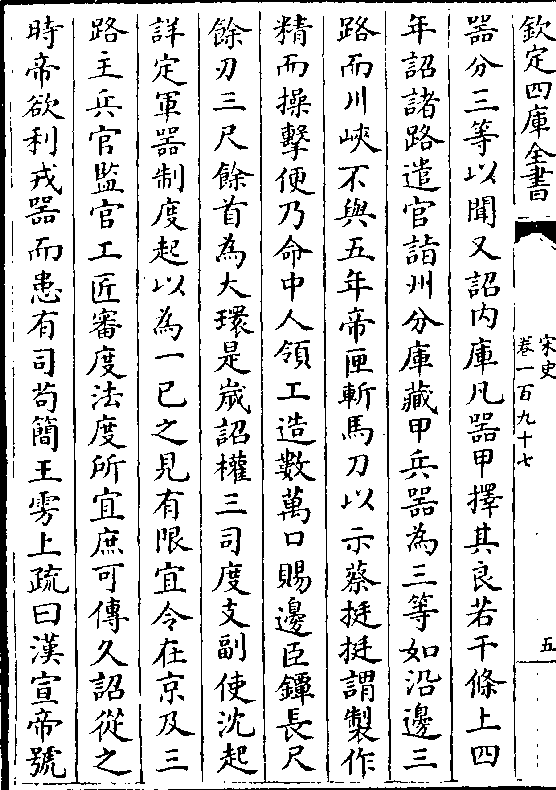 欽定四庫全書
宋史
卷一百九十七
五
器分三等以聞又詔内庫凡器甲擇其良若干條上四
年詔諸路遣官詣州分庫藏甲兵器為三等如沿邊三
路而川峽不與五年帝匣斬馬刀以示蔡挺挺謂製作
精而操擊便乃命中人領工造數萬口賜邊臣鐔長尺
餘刃三尺餘首為大環是歲詔權三司度支副使沈起
詳定軍器制度起以為一已之見有限宜令在京及三
路主兵官監官工匠審度法度所宜庶可傳久詔從之
時帝欲利戎器而患有司苟簡王雱上疏曰漢宣帝號